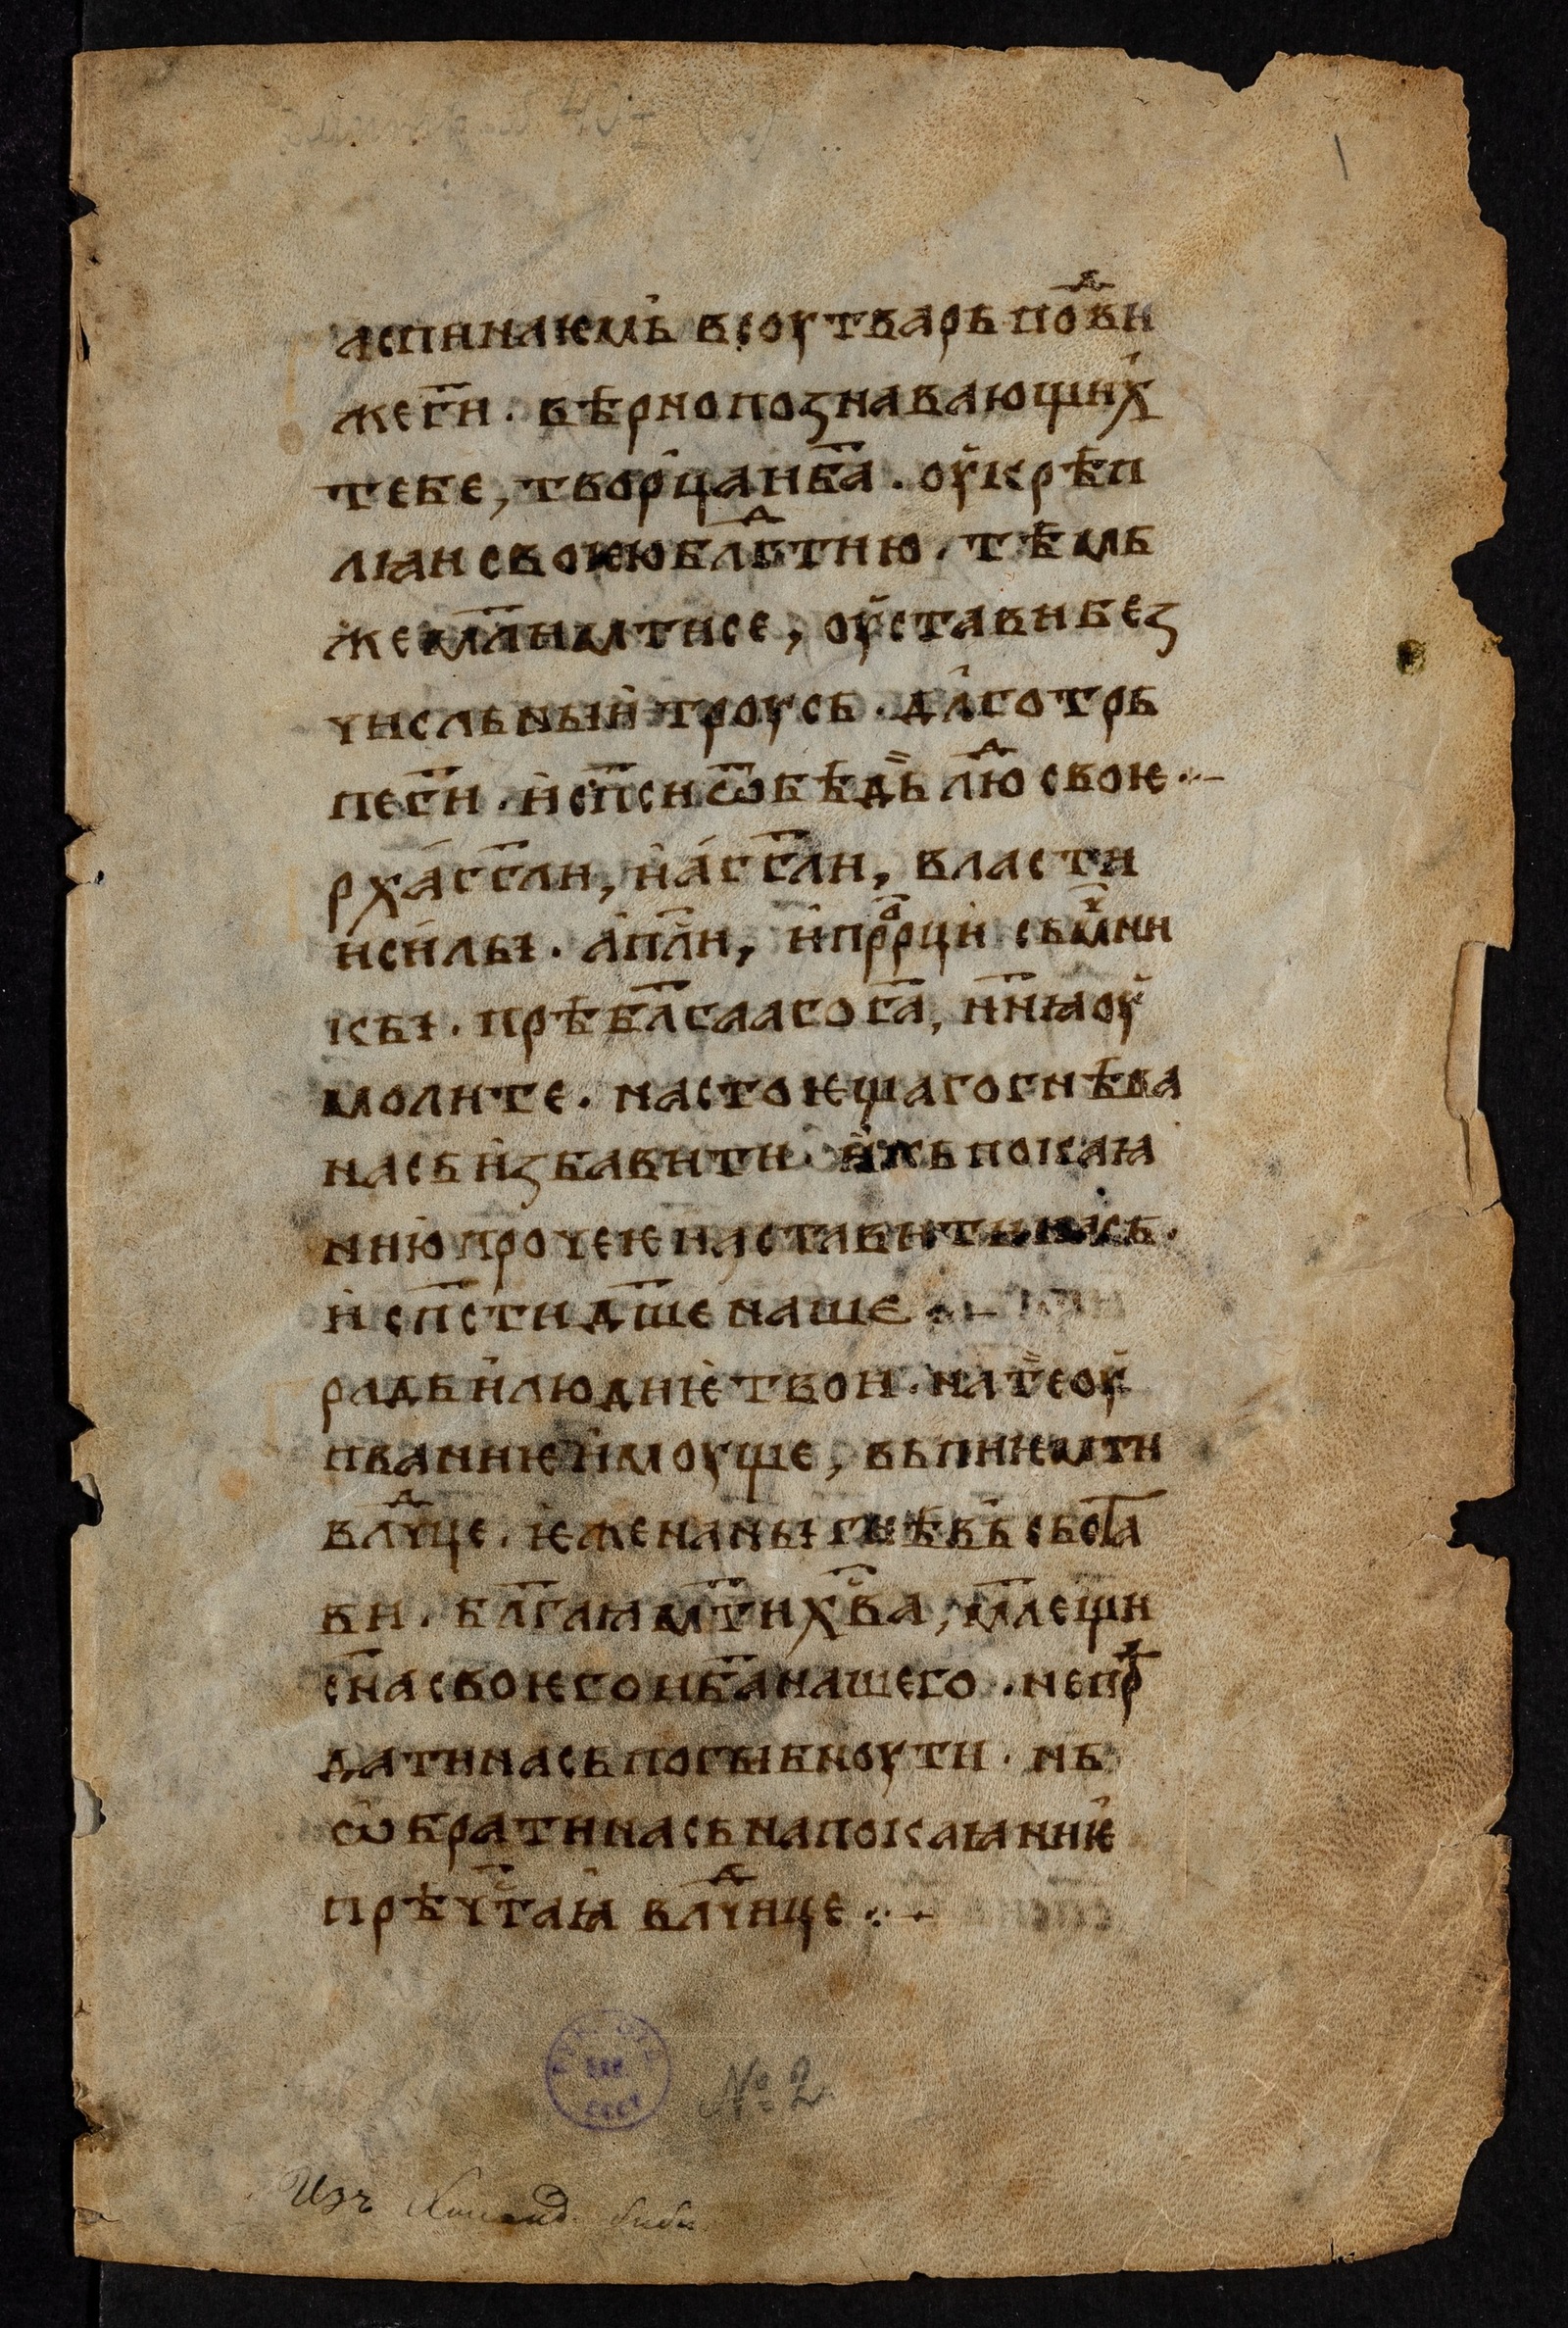 аспинаюмь всоу тварь по́ви
же г҃и. вѣрно познавающих
тебе, творца и б҃а. оукрѣп
лꙗи своѥю бл҃гⷣтию. тѣмь
же мл҃имтисе, оустави без
числьныи троусь. дльготрь
пе г҃и. и сп҃си ѿ бѣдь лю҃ⷣ своѥ ·:-
рхаг҃гли, и аг҃гли, власти
и силы. ап҃ли, и прⷪ҃рци сьмⷱ҃ни
кы. прѣбл҃гааго г҃а, н҃нꙗ оу
молите. настоѥщаго гнѣва
нась избавити. и кь покаꙗ
нию прочеѥ наставити нась.
и сп҃сти дш҃е наше ·:-
радь и людиѥ твои. на те оу
пваниѥ имоуще, вьпиѥмти
влⷣчце. ѥже на ны гнѣвь сьста
ви. бл҃гаꙗ мт҃и хв҃а, мл҃ещи
с҃на своѥго и б҃а нашего. не прⷷ
дати нась погыбноути. нь
ѡбрати нась на покаꙗниѥ
прѣчⷭ҇таꙗ влⷣчице ·:-
№ 2
Изъ